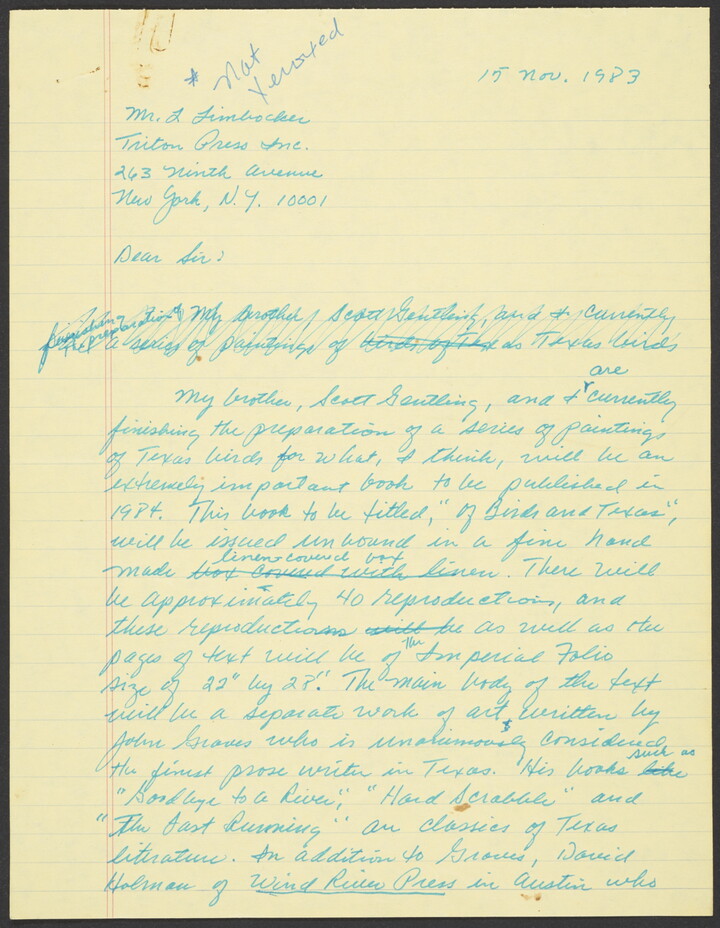 * Not
xeroxed
15 Nov. 1983
Mr. L Limbocker
Triton Press Inc.
263 Ninth Avenue
New York, N.Y. 10001
Dear Sir:
finishing
the preparation of My brother, Scott Gentling, and I, currently
a series of paintings of birds of Texas Texas birds
are
My brother, Scott Gentling, and I currently
finishing the preparation of a series of paintings
of Texas birds for what, I think, will be an
extremely important book to be published in
1984. This book to be titled, "Of Birds and Texas",
will be issued unbound in a fine hand
linen-covered box
made box covered with linen. There will
be approximately 40 reproductions, and
these reproductions will be as well as the
the
pages of text will be of Imperial Folio
size of 22" by 28". The main body of the text
will be a separate work of art written by
John Graves who is unanimously considered
such as
the finest prose writer in Texas. His books like
"Goodbye to a River", "Hard Scrabble" and
"The Last Running" are classics of Texas
literature. In addition to Graves, David
Holman of Wind River Press in Austin who